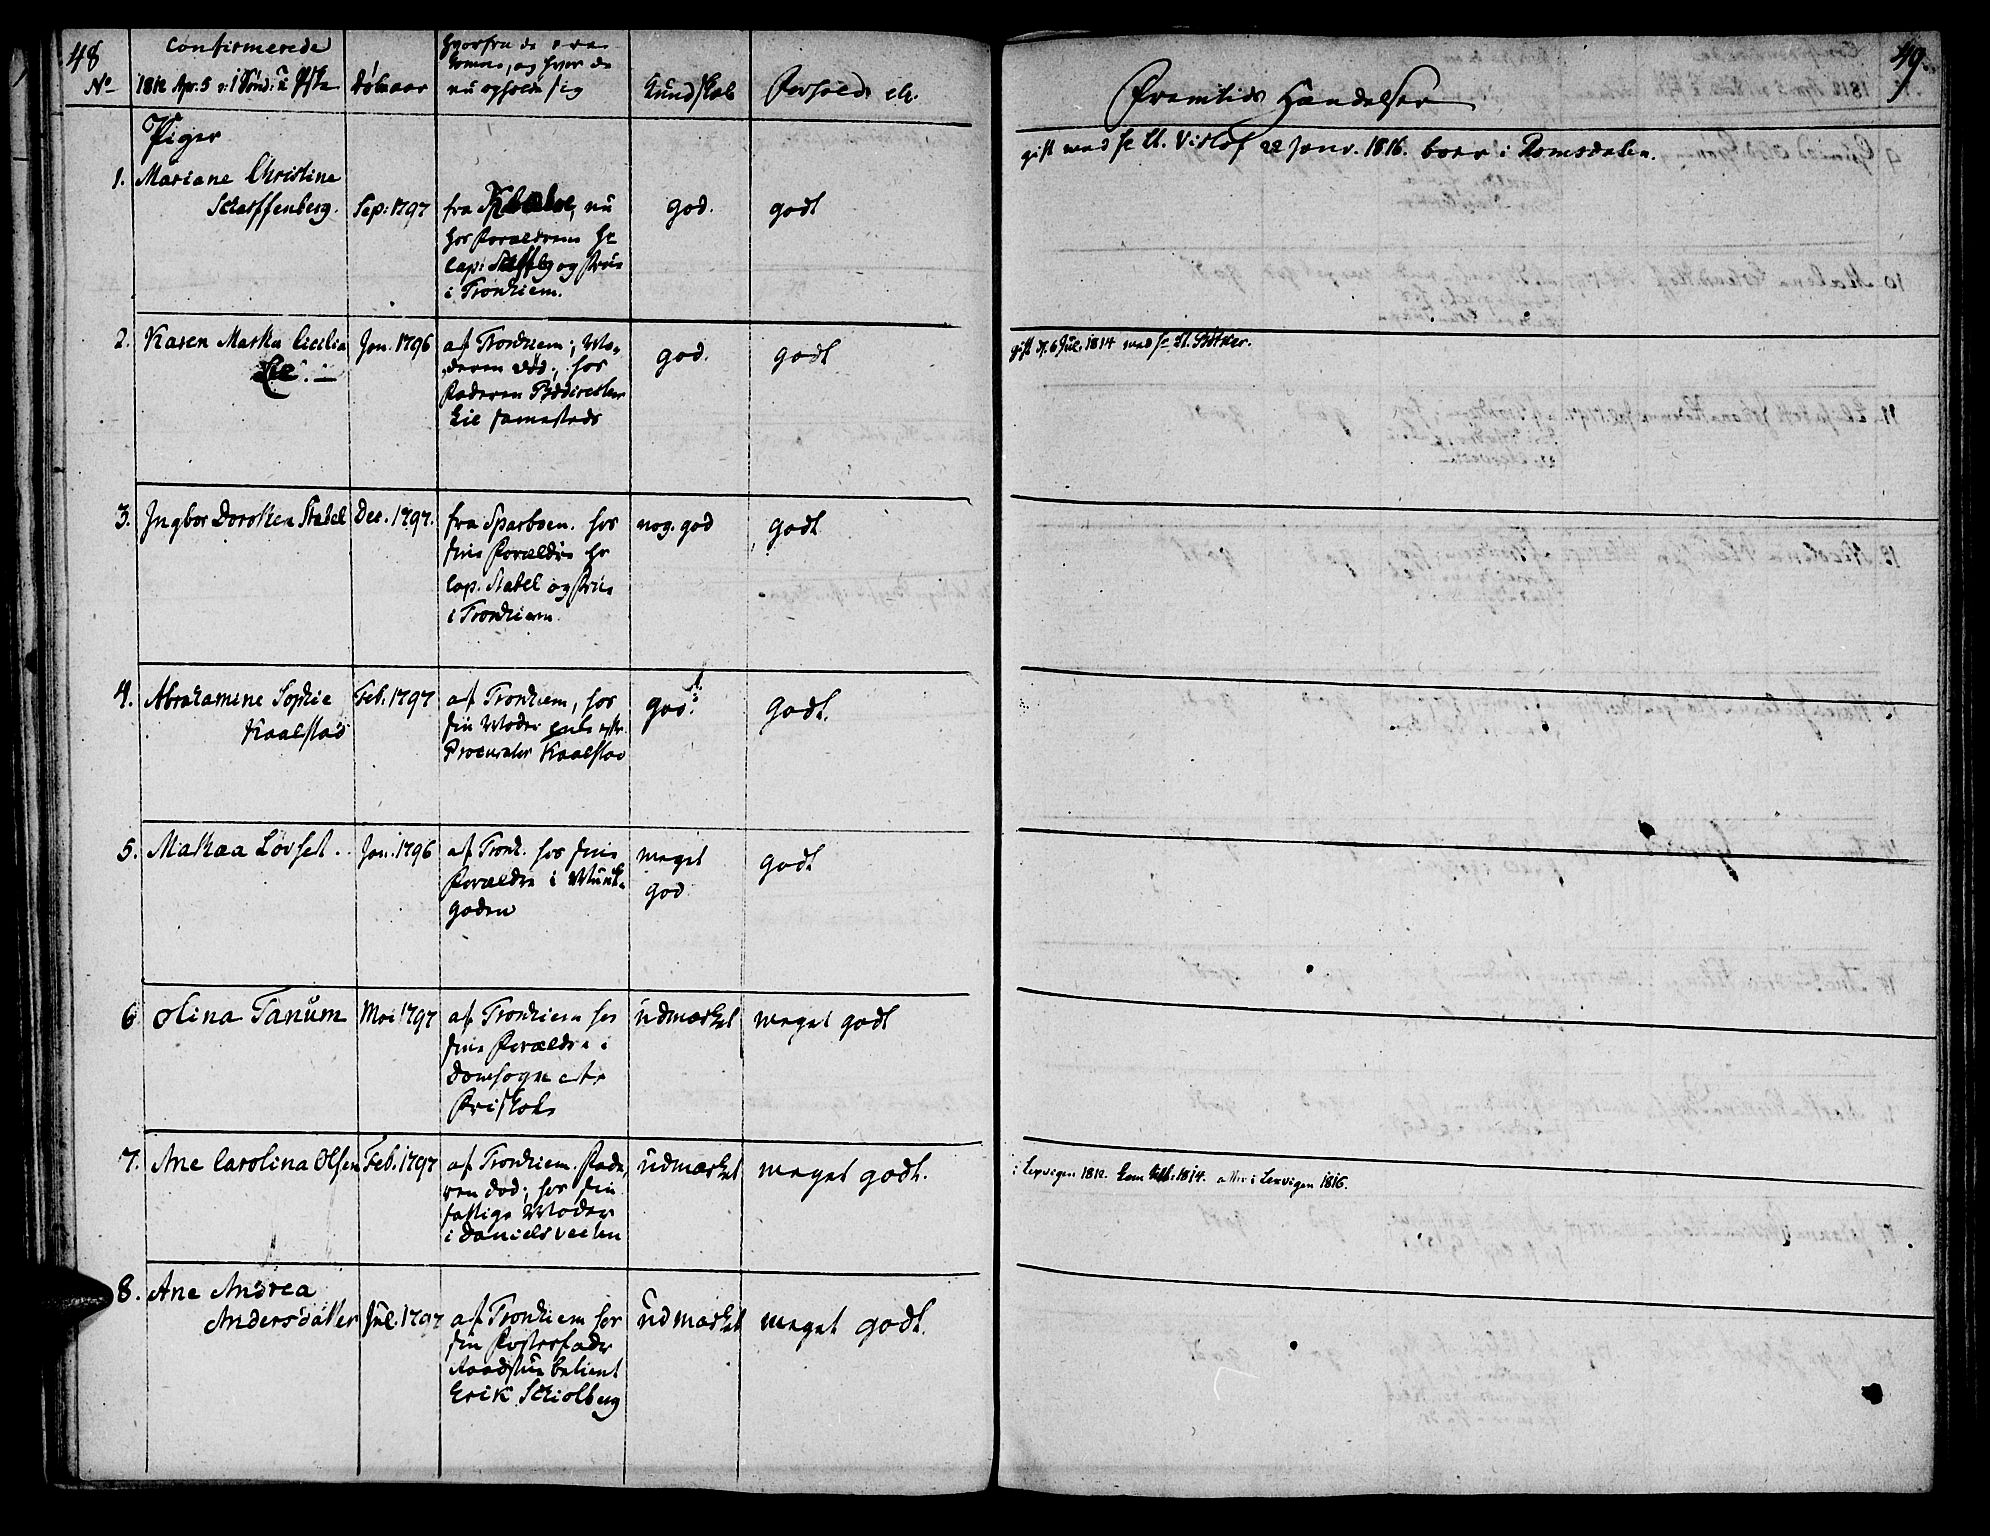 48
No
Confirmerede
1812 Apr. 5
Føbaar
hvorfra de ere
komne, og hvor de
nu opholde sig
Kundskab
Forhold etc.
Piger
1. Mariane Christine
Scharffenberg.
Sep: 1797
fra nu
hos Forældrene Hr
Cap: og Frue
i Tronhiem.
god.
godt
2. Karen Martha Cicilia
Lie. —
Jan. 1796
af Tronhiem; Mo-
deren død; hos
Faderen
Lie sammesteds
god.
godt
3. Ingbor Dorothea Stabel
Dec. 1797.
fra Sparboen. hos
sine Forældre Hr
Cap. Stabel og Frue
i Tronhiem.
nog. god
godt
4. Abrahamine Sophie
Kaalstad
Feb. 1797
af Tronhiem, hos
sin Moder
Procurator Kaalstad
god.
godt.
5. Mathea Lovset.
Jan. 1796
af Tronh. hos sine
Forældre i Munke-
gaden
meget
god
godt
6 Olina Tanum
Mai 1797
af Tronhiem hos
sine Forældre i
Domsogne
Friskole
udmærket
meget godt
7. Ane Carolina Olsen
Feb. 1797
af Tronhiem. Fade-
ren død; hos sin
fattige Moder
i Danielsveeten
udmærket
meget godt.
8. Ane Andrea
Andersdatter
Jul. 1797
af Tronhiem hos
sin Fosterfader
Raadstue betient
Erik Schiolberg
udmærket
meget godt.
49.
Fremtids Hændelser
gift med Hr Lt. Visløf 22 Janr. 1816. boer i Romsdalen.
gift d. 6 Jul. 1814 med Hr Lt. Bøtker.
i Lexvigen 1812. kom 1814. atter i Lexvigen 1816.